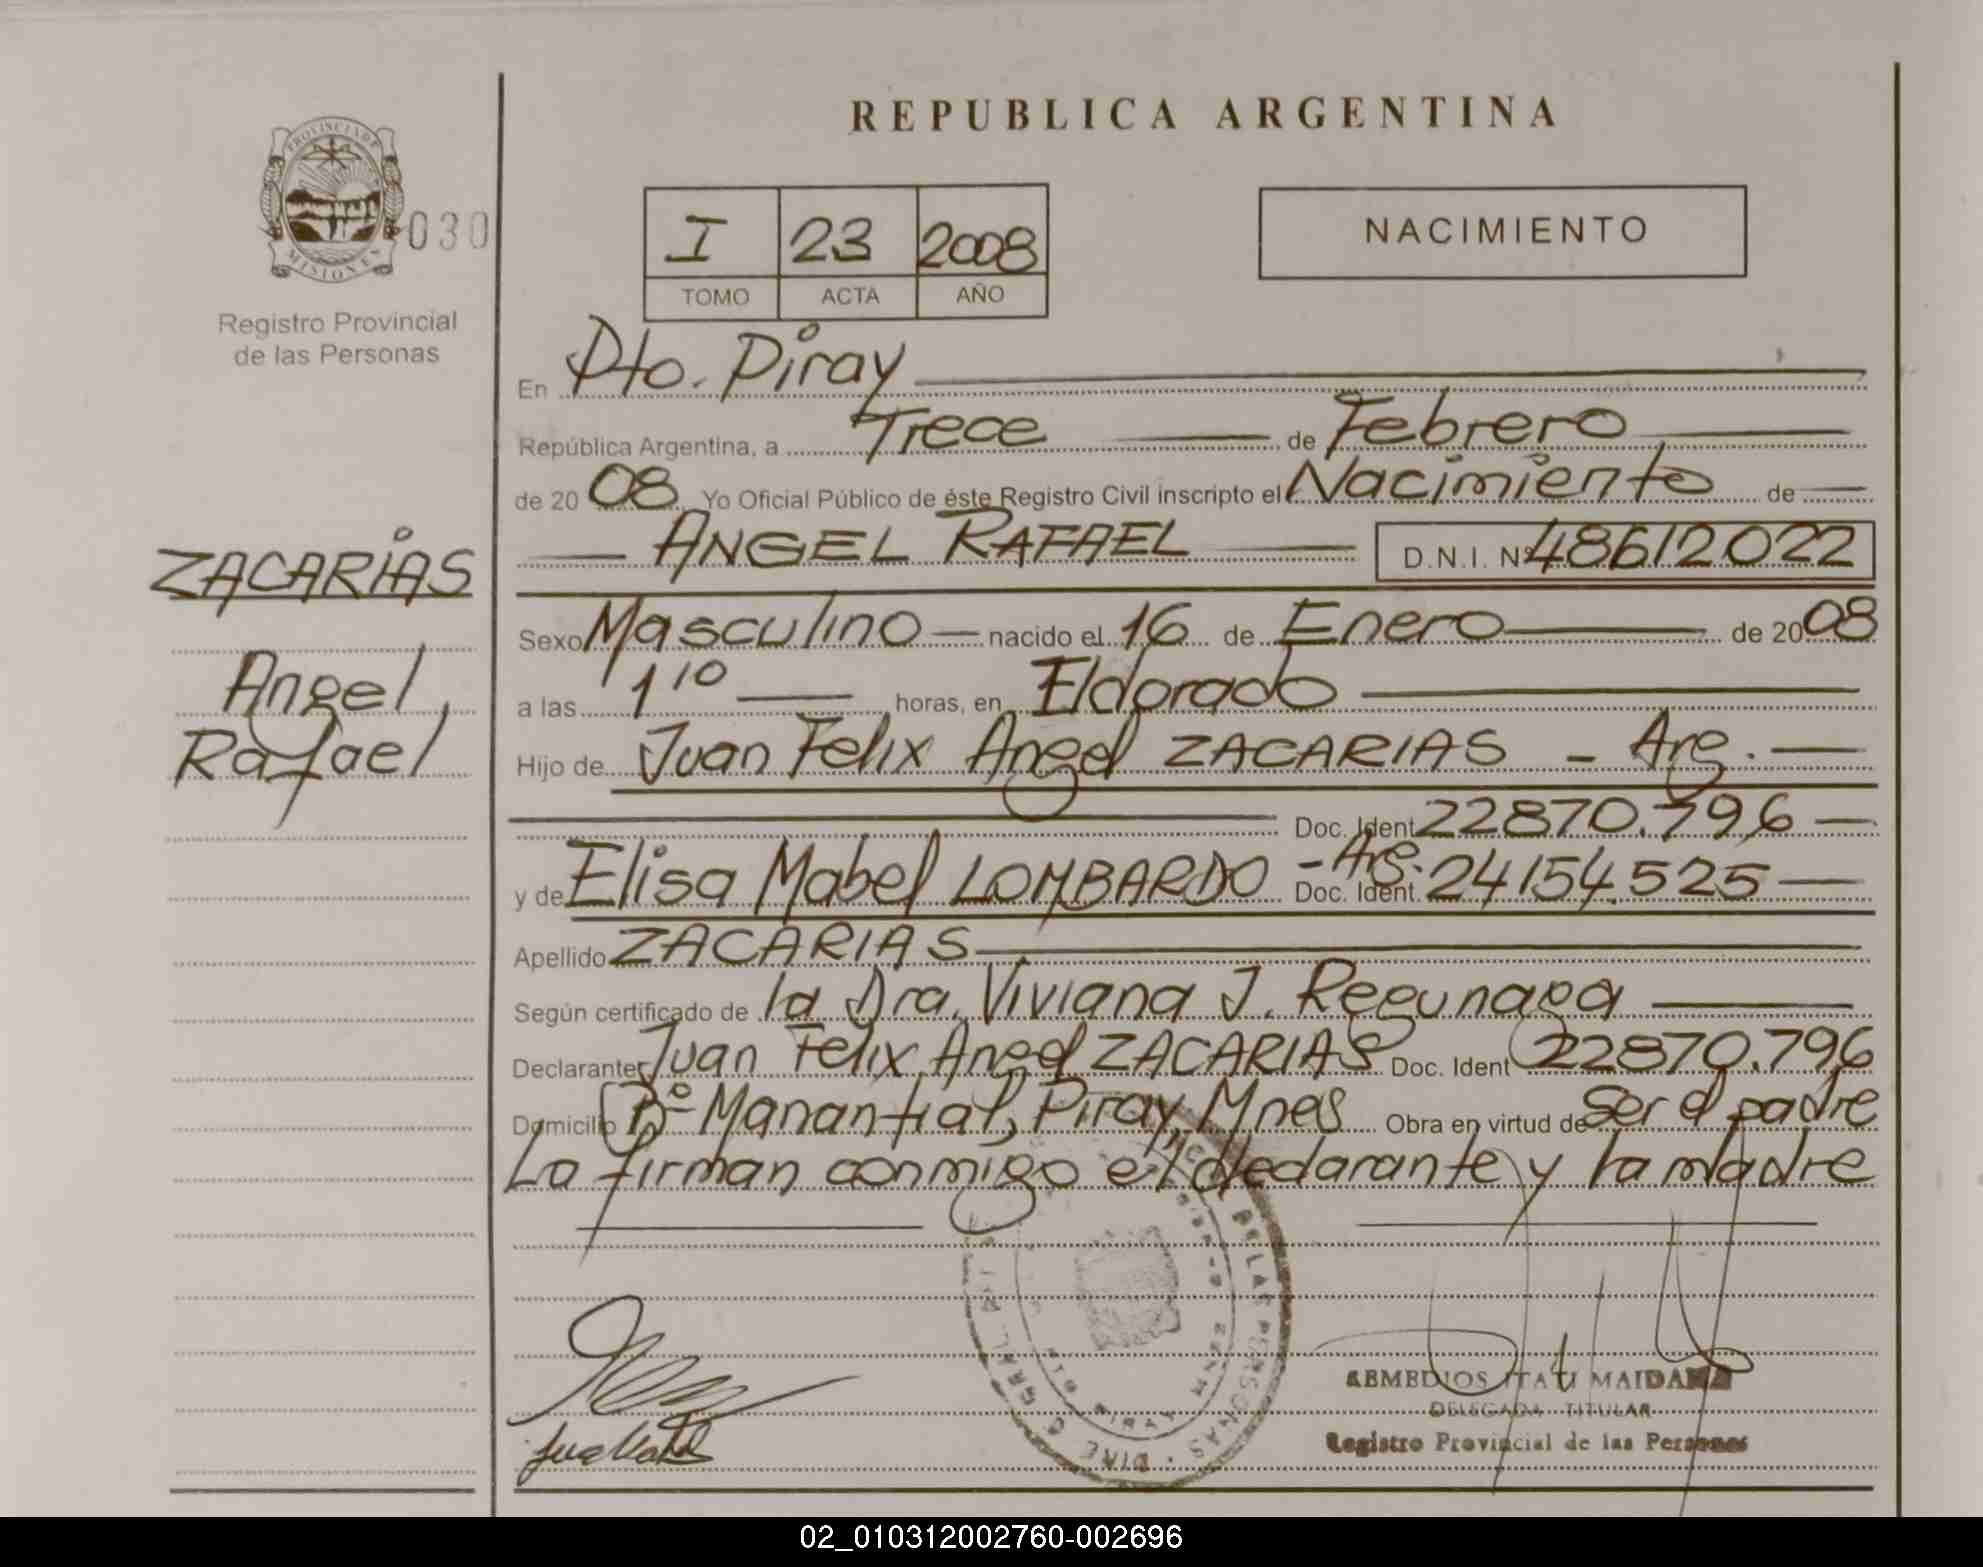 REPUBLICA ARGENTINA
PROVINCIA DE
MISIONES
030
Registro Provincial
de las Personas
I 23 2008
TOMO ACTA AÑO
NACIMIENTO
En Pto. Piray
República Argentina, a Trece de Febrero
de 20 08 Yo Oficial Público de éste Registro Civil inscripto el Nacimiento de
ANGEL RAFAEL D.N.I. Nº 48612022
ZACARIAS
Angel
Rafael
Sexo Masculino nacido el 16 de Enero de 20 08
a las 1 10 horas, en Eldorado
Hijo de Juan Felix Angel ZACARIAS - Arg.
Doc. Ident 22870.796
y de Elisa Mabel LOMBARDO - Arg. Doc. Ident. 24154.525
Apellido ZACARIAS
Según certificado de la Dra. Viviana J. Regunaga
Declarante Juan Felix Angel ZACARIAS Doc. Ident 22870.796
Domicilio Bº Manantial, Piray, Mnes Obra en virtud de Ser el padre
Lo firman conmigo el declarante y la madre
DE LAS PERSONAS
PIRAY
REMEDIOS ITATI MAIDANA
DELEGADA TITULAR
Registro Provincial de las Personas
02_010312002760-002696